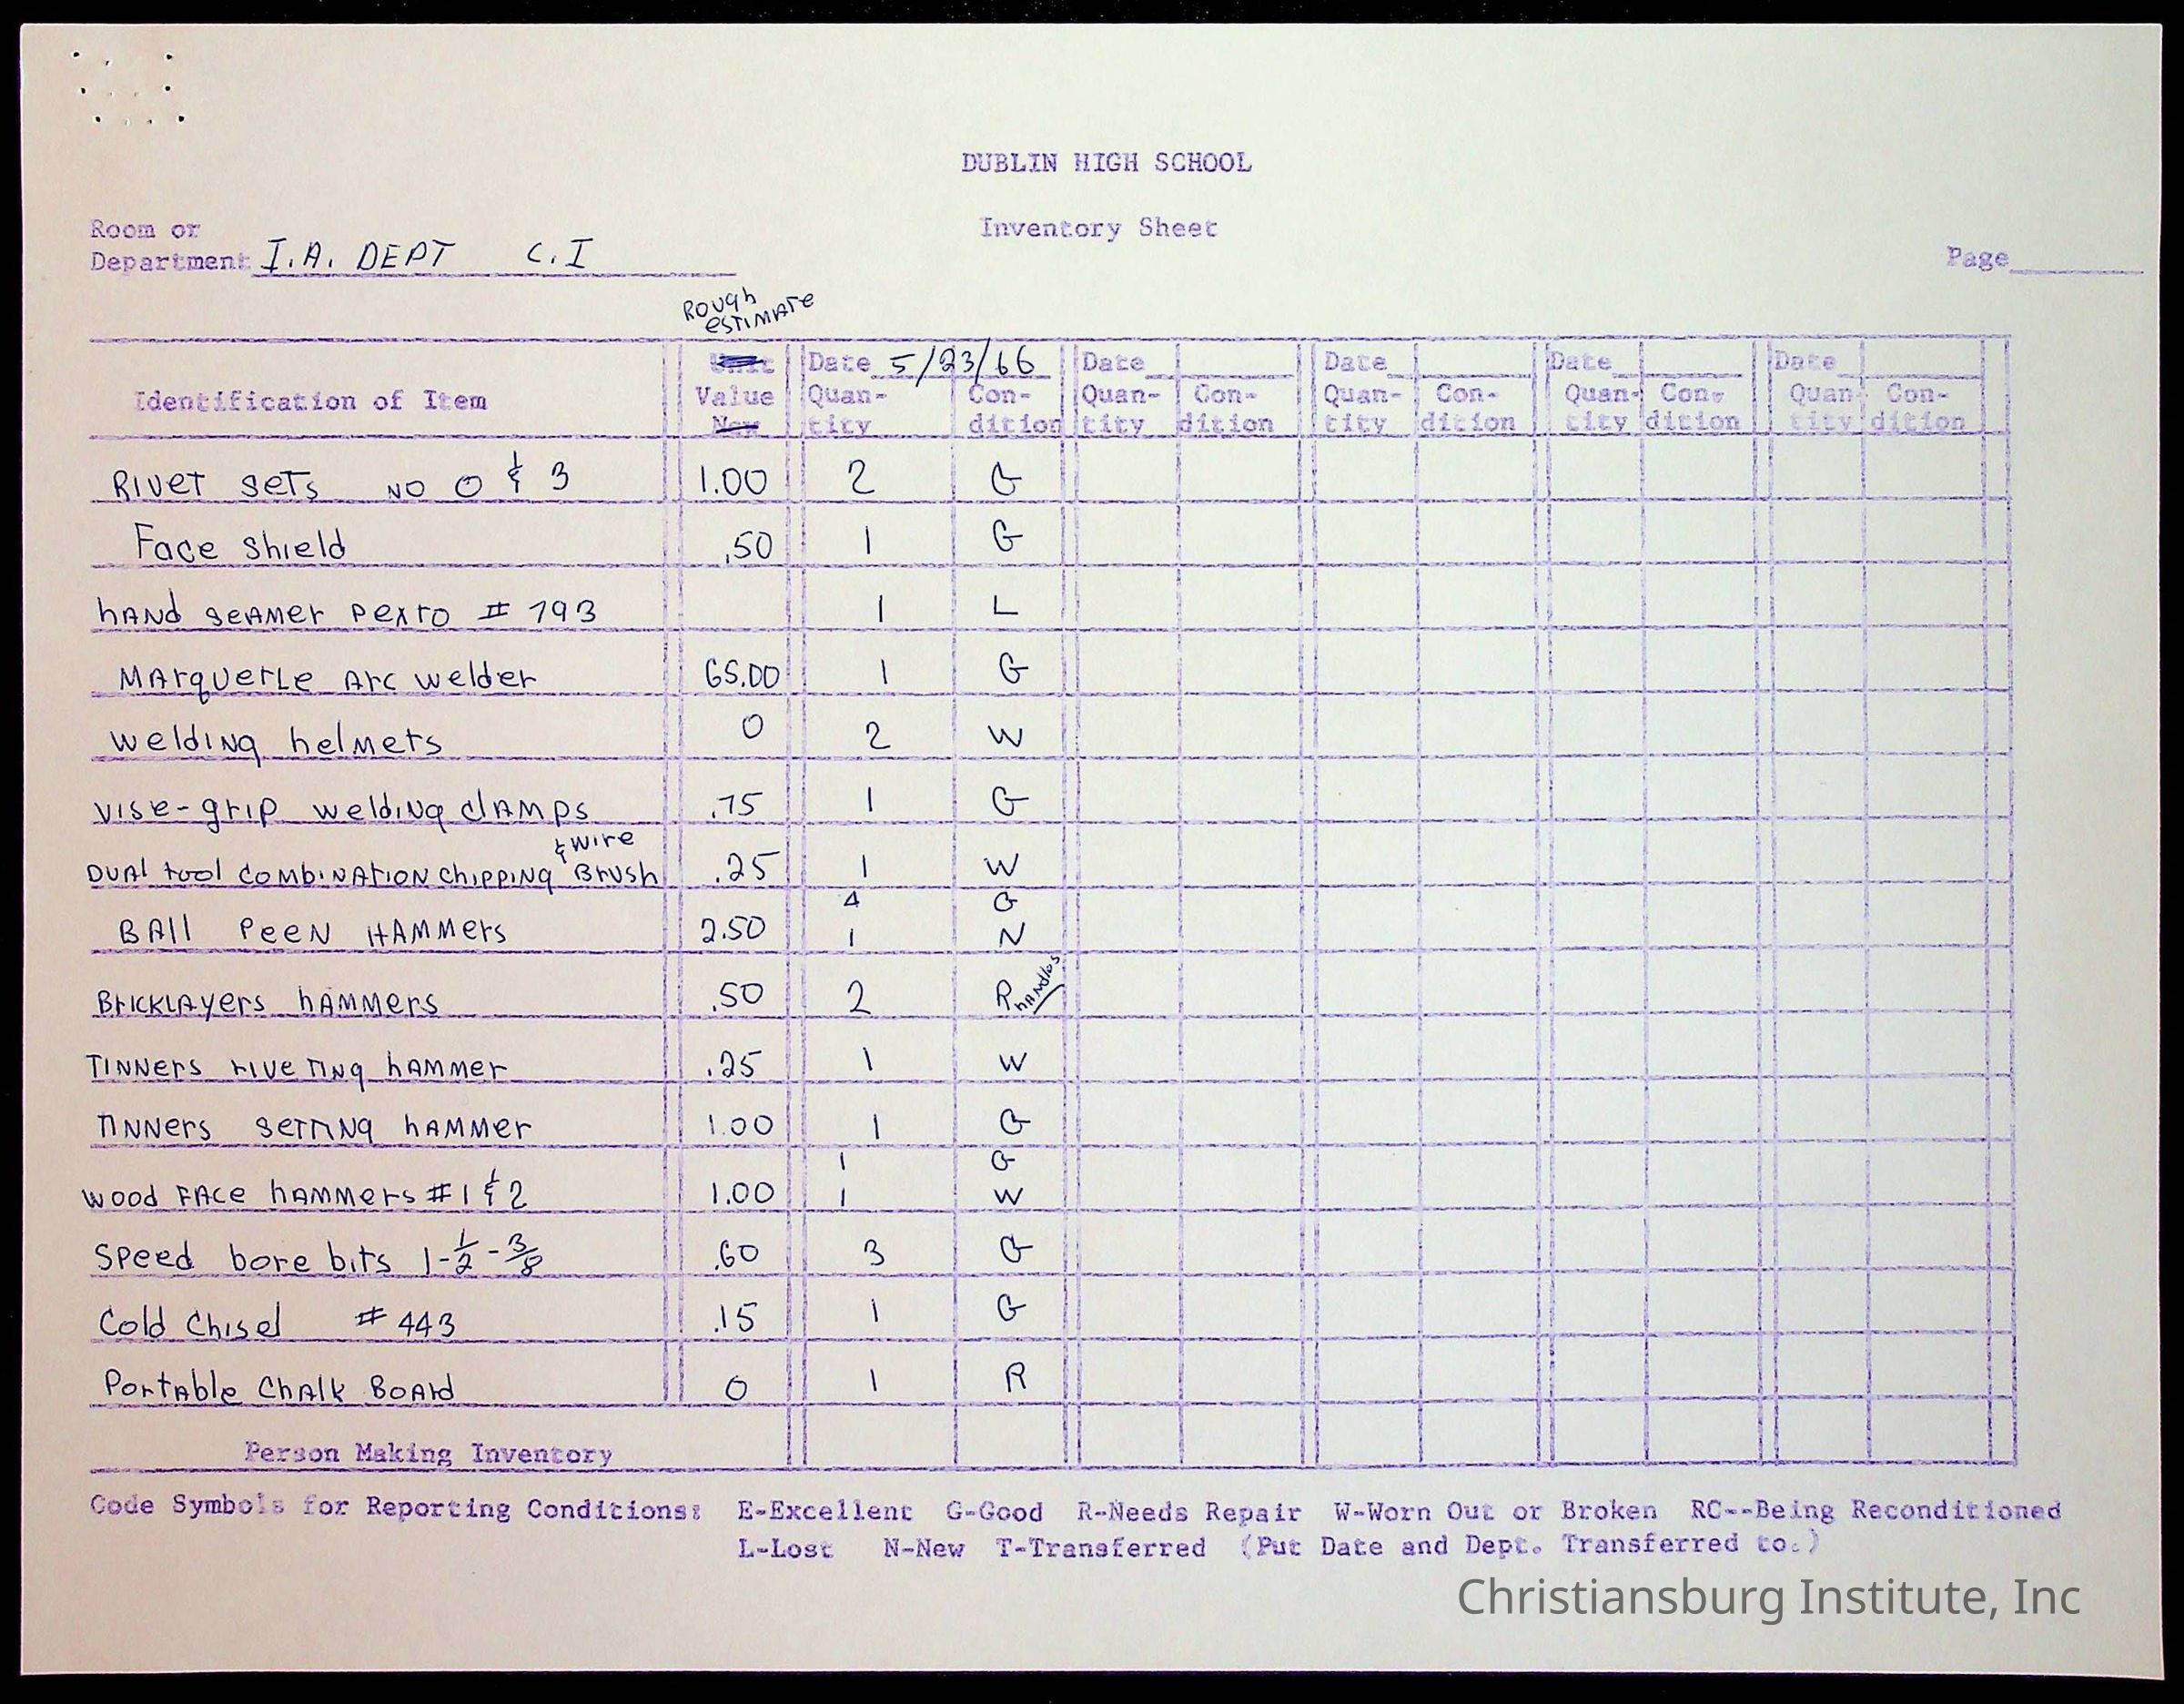 DUBLIN HIGH SCHOOL
Inventory Sheet
Room or
Department I.A. DEPT C.I
Page
Rough
estimate
Unit Date 5/23/66 Date Date Date Date
Identification of Item Value Quan- Con- Quan- Con- Quan- Con- Quan- Con- Quan- Con-
New tity dition tity dition tity dition tity dition tity dition
Rivet sets NO 0 & 3 1.00 2 G
Face Shield .50 1 G
hand seamer Pexto # 793 1 L
Marquette Arc welder 65.00 1 G
welding helmets 0 2 W
vise-grip welding clamps .75 1 G
& wire
Dual tool combination chipping Brush .25 1 W
4 G
Ball Peen Hammers 2.50 1 N
Bricklayers hammers .50 2 R handles
Tinners riveting hammer .25 1 W
Tinners setting hammer 1.00 1 G
1 G
Wood Face hammers #1 & 2 1.00 1 W
Speed bore bits 1-1/2-3/8 .60 3 G
Cold Chisel # 443 .15 1 G
Portable Chalk Board 0 1 R
Person Making Inventory
Code Symbols for Reporting Conditions: E-Excellent G-Good R-Needs Repair W-Worn Out or Broken RC--Being Reconditioned
L-Lost N-New T-Transferred (Put Date and Dept. Transferred to.)
Christiansburg Institute, Inc